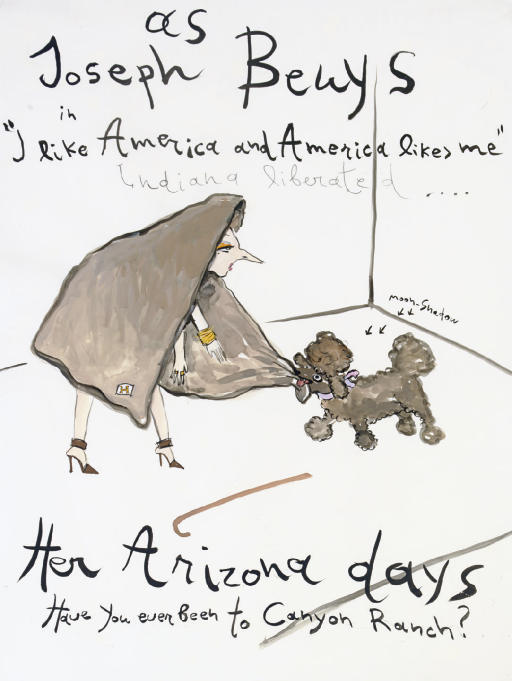 as
Joseph Beuys
in
"I like America and America likes me"
Indiana liberated ....
moon-Shadow
H
Her Arizona days
Have You ever Been to Canyon Ranch?